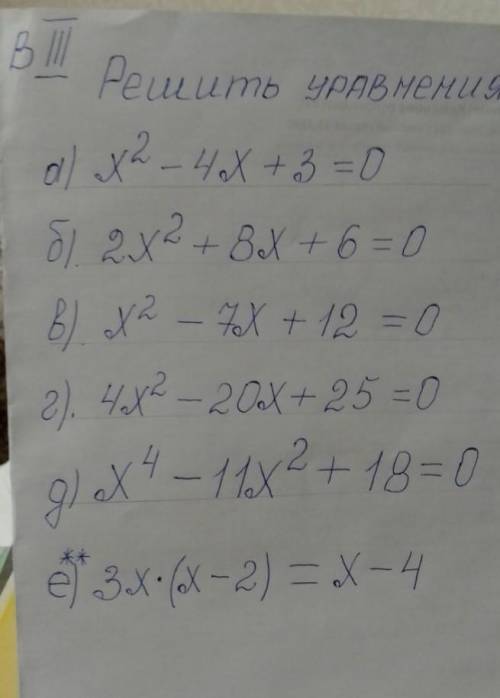 В III
Решить уравнения
а) x² - 4x + 3 = 0
б). 2x² + 8x + 6 = 0
в) x² - 7x + 12 = 0
г). 4x² - 20x + 25 = 0
д) x⁴ - 11x² + 18 = 0
е)** 3x·(x-2) = x-4